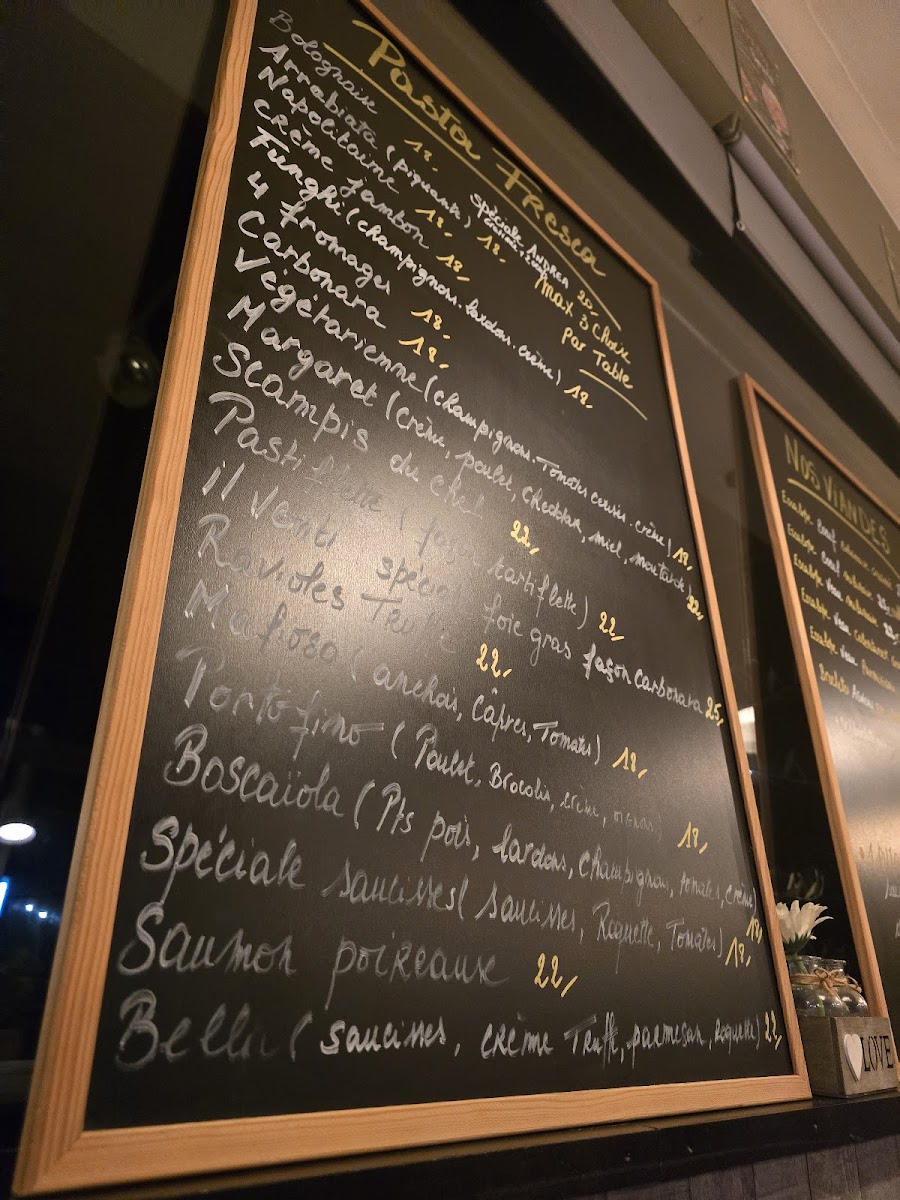 Pasta Fresca
Bolognaise 18,
Arrabiata (piquante) 18,
Spéciale ANDREA 20,
Napolitaine 18,
max 3 choix
par Table
crème jambon 18,
Funghi (champignons. lardons. crème) 18,
4 fromages 18,
Carbonara 18,
Végétarienne (champignons. Tomates cerises. crème) 18,
Margaret (crème, poulet, cheddar, miel, moutarde) 22,
Scampis du chef 22,
Pastiflette (façon tartiflette) 22,
il Vento spécial foie gras façon carbonara 25,
Ravioles Truffe 22,
Mafiosa (anchois, câpres, Tomates) 18,
Portofino (Poulet, Brocolis, crème, oignons) 18,
Boscaïola (Pts pois, lardons, champignons, tomates, crème) 18,
Spéciale saucisses (saucisses, Roquette, Tomates) 18,
Saumon poireaux 22,
Bella (saucisses, crème Truffe, parmesan, Roquette) 22,
NOS VIANDES
Escalope
Escalope
Escalope veau
Escalope veau
Escalope veau
LOVE